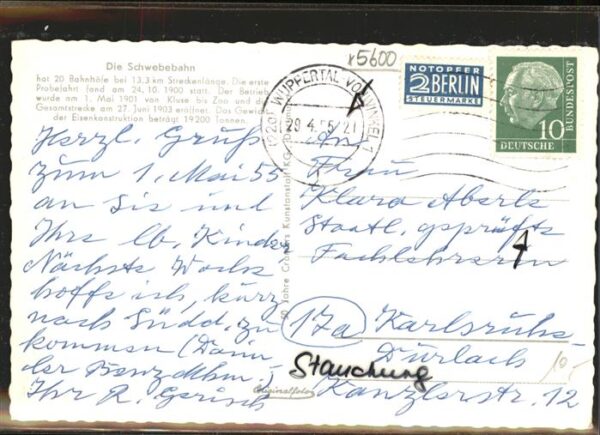 Die Schwebebahn
hat 20 Bahnhöfe bei 13.3 km Streckenlänge. Die erste
Probefahrt fand am 24.10.1900 statt. Der Betrieb
wurde am 1. Mai 1901 von Kluse bis Zoo und die
Gesamtstrecke am 27. Juni 1903 eröffnet. Das Gewicht
der Eisenkonstruktion beträgt 19200 Tonnen.
r5600
WUPPERTAL-VOHWINKEL 1
29.4.55-21
NOTOPFER
2 BERLIN
STEUERMARKE
10
DEUTSCHE
BUNDESPOST
Herzl. Gruß
zum 1. Mai 55
an Sie und
Ihre lb. Kinder
Nächste Woche
hoffe ich, kurz
nach Südd. zu
kommen (Dann
der
Ihr R.
50 Jahre Kunstanstalt KG
An
Frau
Klara Aberle
Staatl. geprüfte
Fachlehrerin
17a Karlsruhe-
Durlach
Kanzlerstr. 12
Stauchung
Originalfoto
10.-